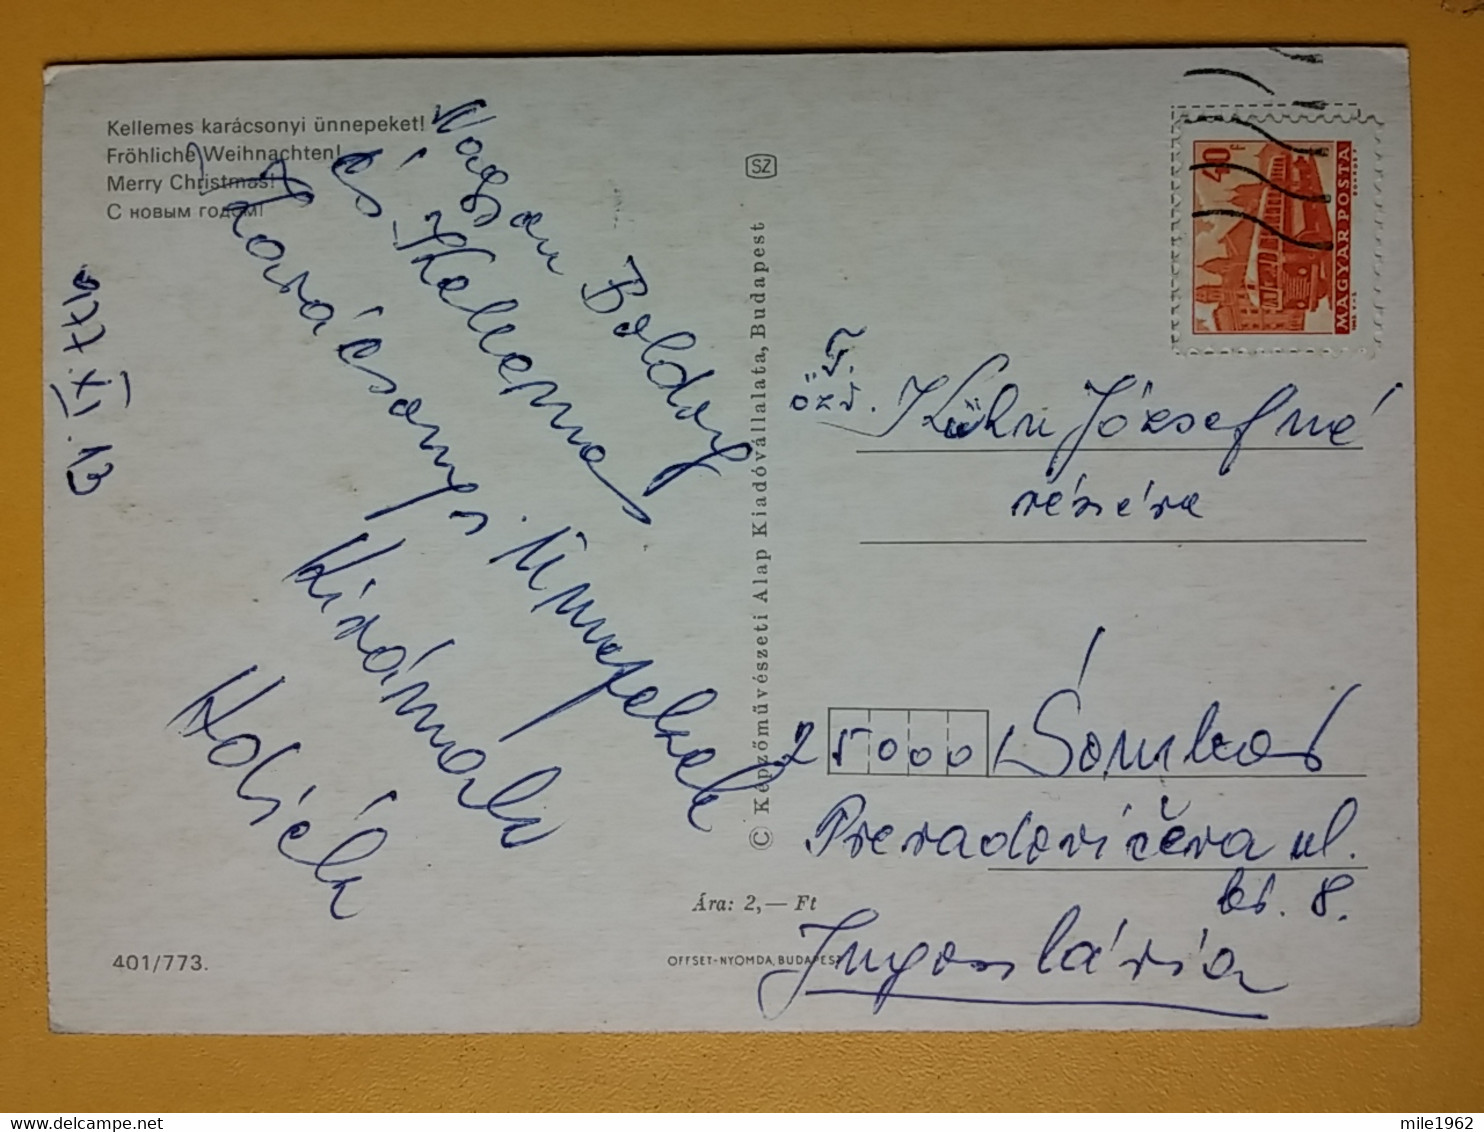 Kellemes karácsonyi ünnepeket!
Fröhliche Weihnachten!
Merry Christmas!
С новым годом!
Nagyon Boldog
és Kellemes
Karácsonyi Ünnepeket
Kívánunk
SZ
© Képzőművészeti Alap Kiadóvállalata, Budapest
Ára: 2,— Ft
OFFSET-NYOMDA, BUDAPEST
401/773.
40 F
MAGYAR POSTA
özv.
Kühn Józsefné
részére
25000 Sombor
Preradovićeva ul.
br. 8.
Jugoslávia
mile1962